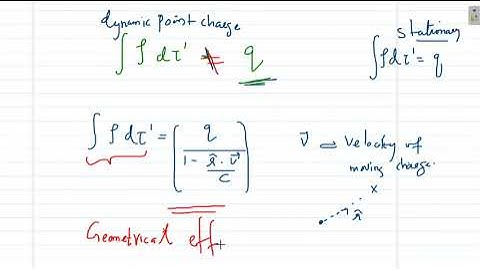 dynamic point charge
∫ ρ dτ' ≠ q
stationary
∫ρdτ' = q
∫ ρ dτ' = ( q / (1 - r̂ · v⃗ / c) )
v⃗ ⇒ Velocity of
moving charge.
x
r̂
Geometrical eff